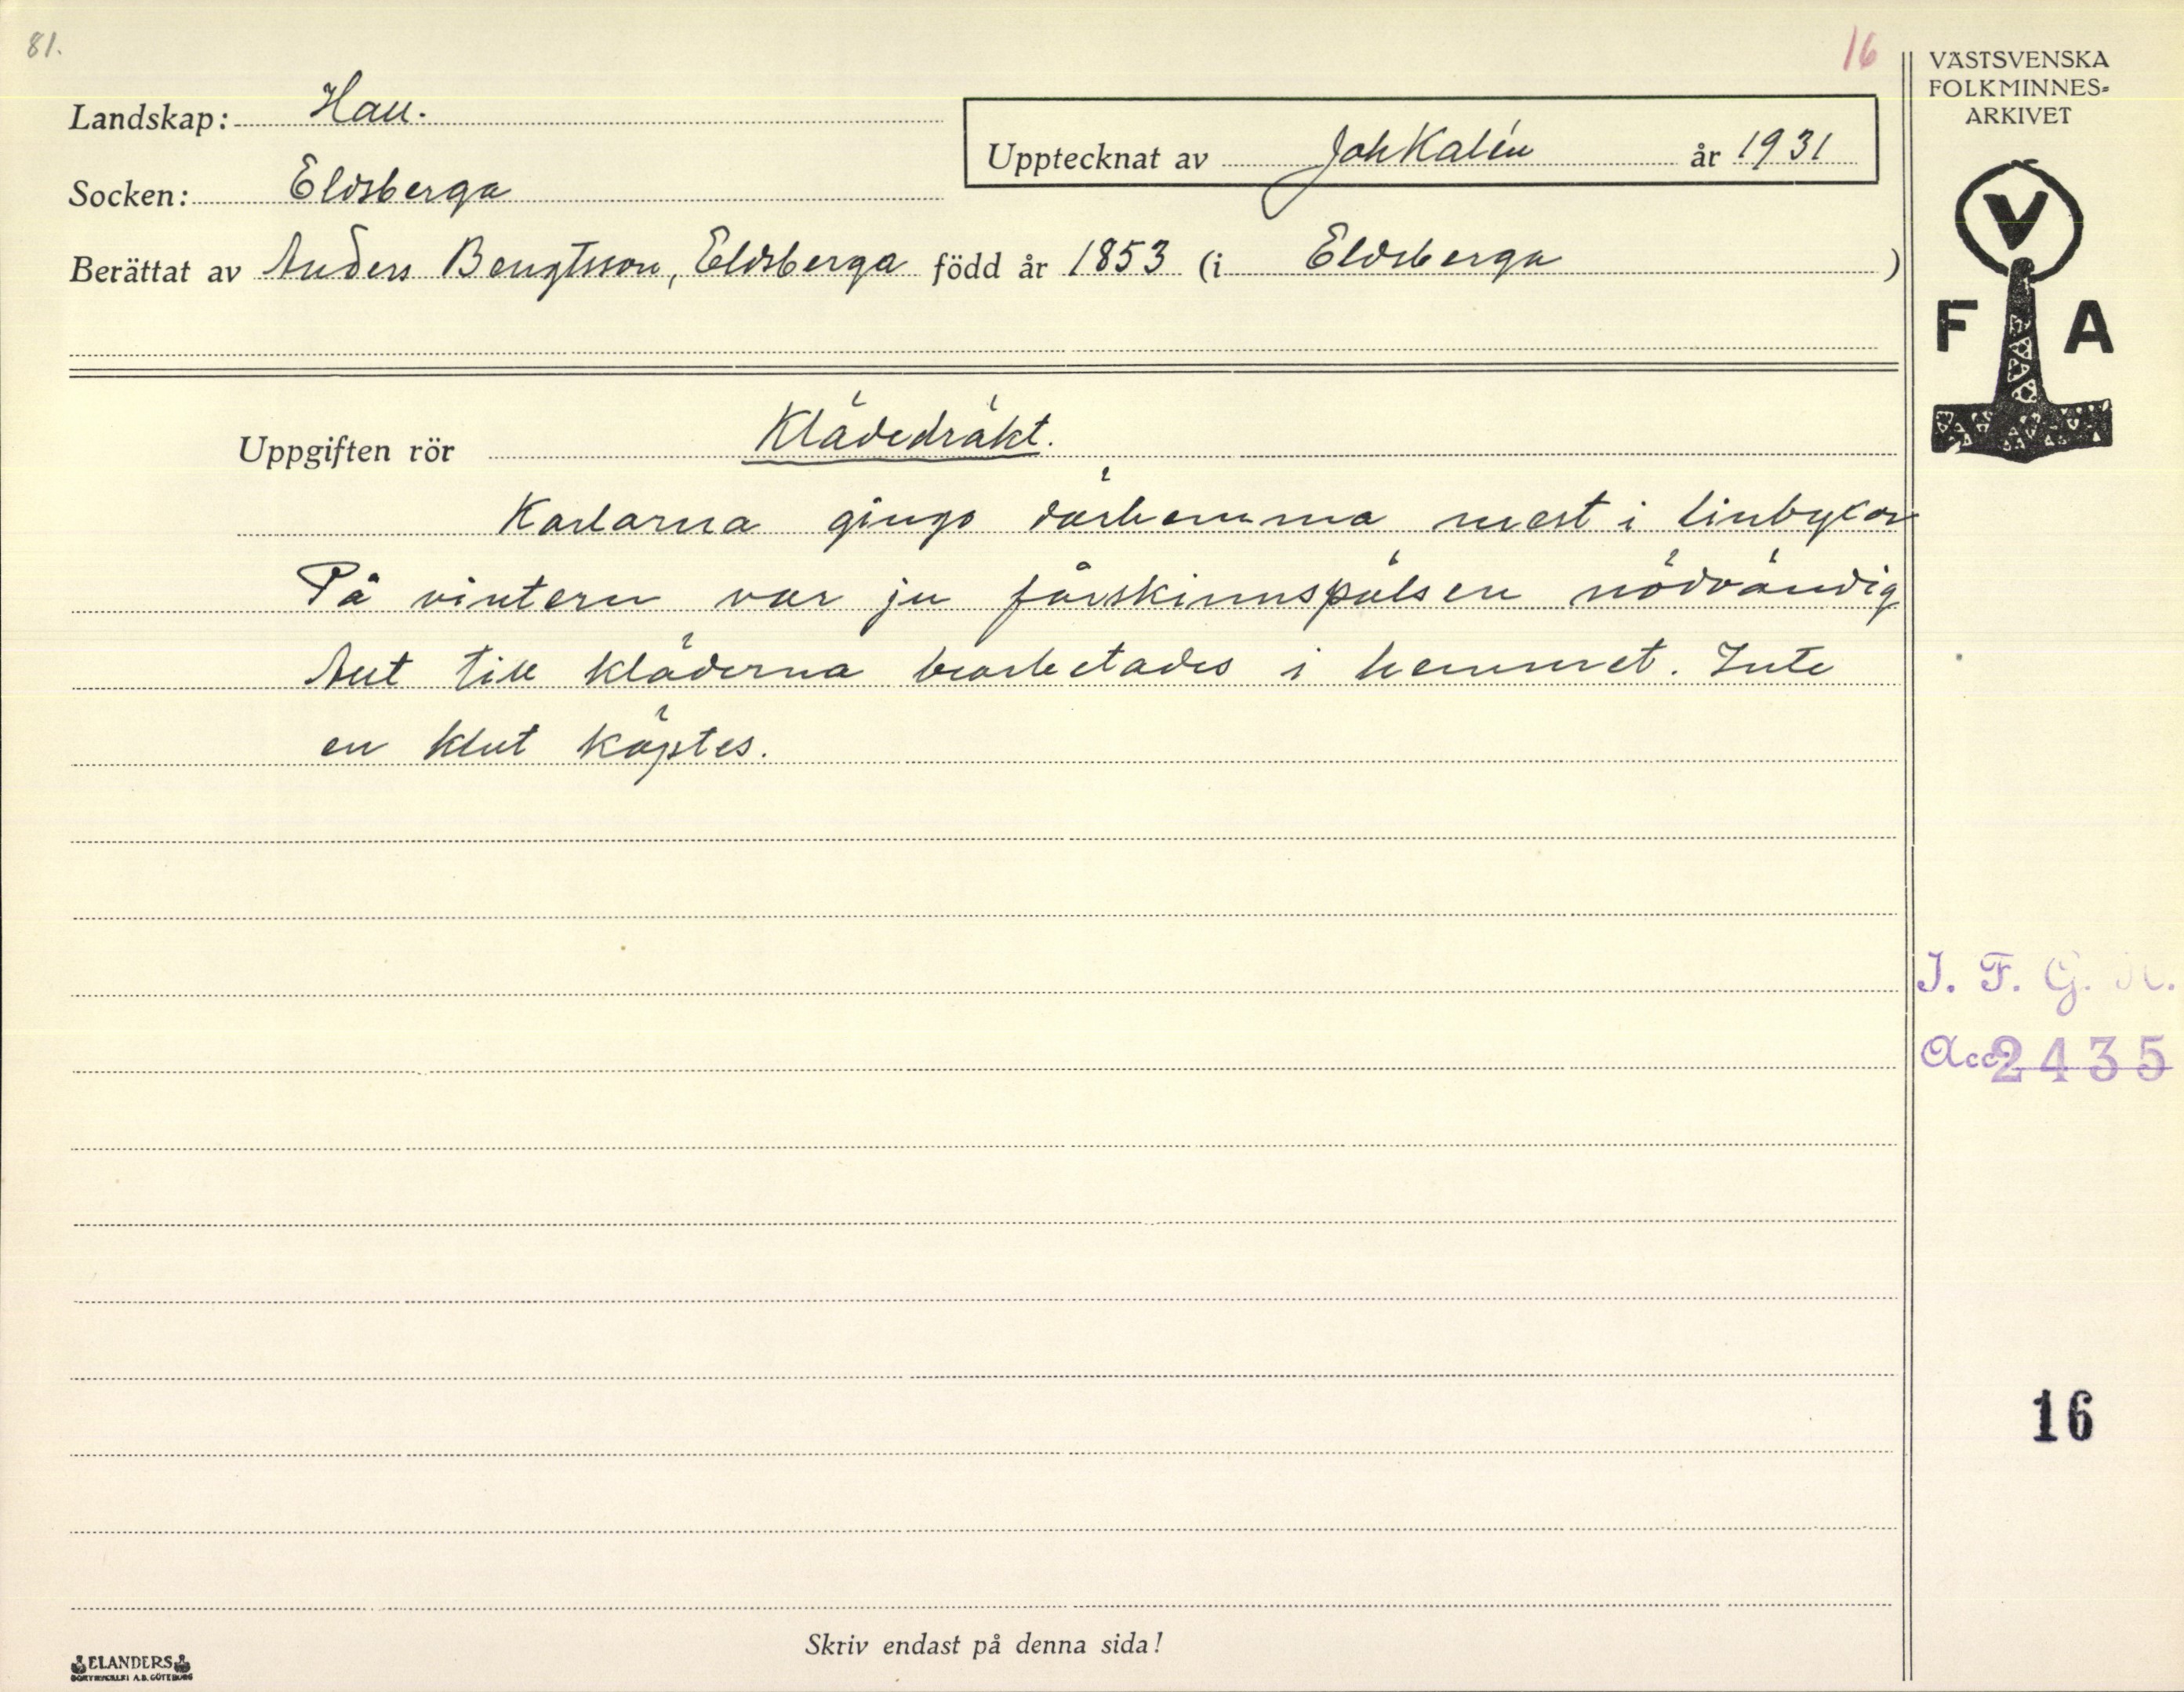 81.
16
VÄSTSVENSKA
FOLKMINNES-
ARKIVET
Landskap: Hall.
Upptecknat av Joh Kalén år 1931
Socken: Eldsberga
Berättat av Anders Bengtsson, Eldsberga född år 1853 (i Eldsberga )
V
F A
Uppgiften rör Klädedräkt.
Karlarna gingo därhemma mest i linbyxor
På vintern var ju fårskinnspälsen nödvändig
Allt till kläderna bearbetades i hemmet. Inte
en klut köptes.
I. F. G. H.
Acc. 2435
16
Skriv endast på denna sida!
ELANDERS
BOKTRYCKERI A.B. GÖTEBORG